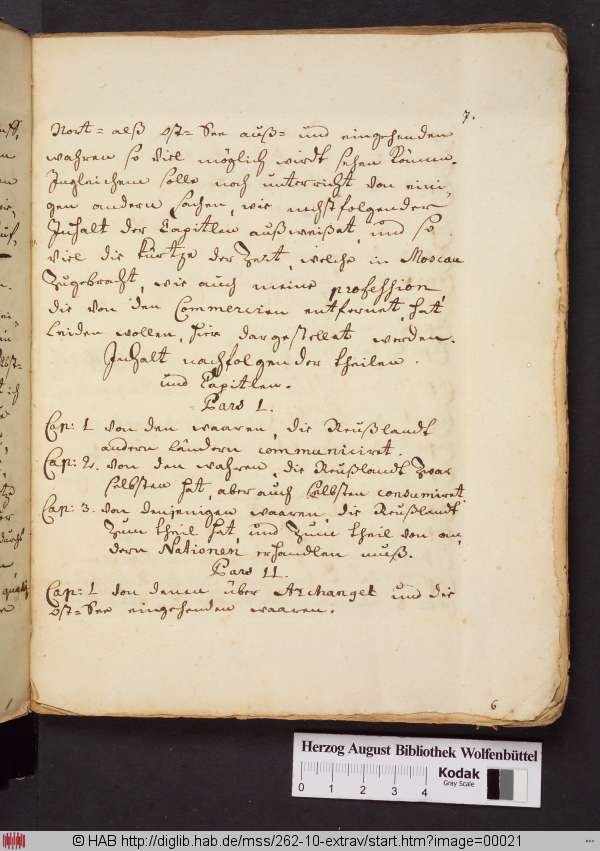 7.
Nort= alß Ost=See auß= und eingehenden
wahren so viel möglich wirdt sehen können.
Ingleichem solle noch unterricht von eini,
gen andern sachen, wie nechstfolgender
Inhalt der Capitlen außweißet, und so
viel die kürtze der Zeit, welche in Moscau
zugebracht, wie auch meine profession,
die von den Commercien entfernet, hat
leiden wollen, hier dargestellet werden.
Inhalt nachfolgender theilen
und Capitlen.
Pars I.
Cap: 1. von den waaren, die Reußlandt
andern ländern communiciret.
Cap: 2. von den wahren, die Reußlandt zwar
selbsten hat, aber auch selbsten consumiret.
Cap: 3. von denjenigen waaren, die Reußlandt
zum theil hat, und zum theil von an,
dern Nationen erhandlen muß.
Pars II.
Cap: 1. von denen über Archangel und die
Ost=See eingehenden waaren.
6
Herzog August Bibliothek Wolfenbüttel
0 1 2 3 4
Kodak
Gray Scale
© HAB http://diglib.hab.de/mss/262-10-extrav/start.htm?image=00021